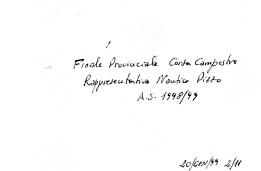 Finale Provinciale Corsa Campestre
Rappresentativa Nautico Pizzo
A.S. 1998/99
20/GEN/99 2/11